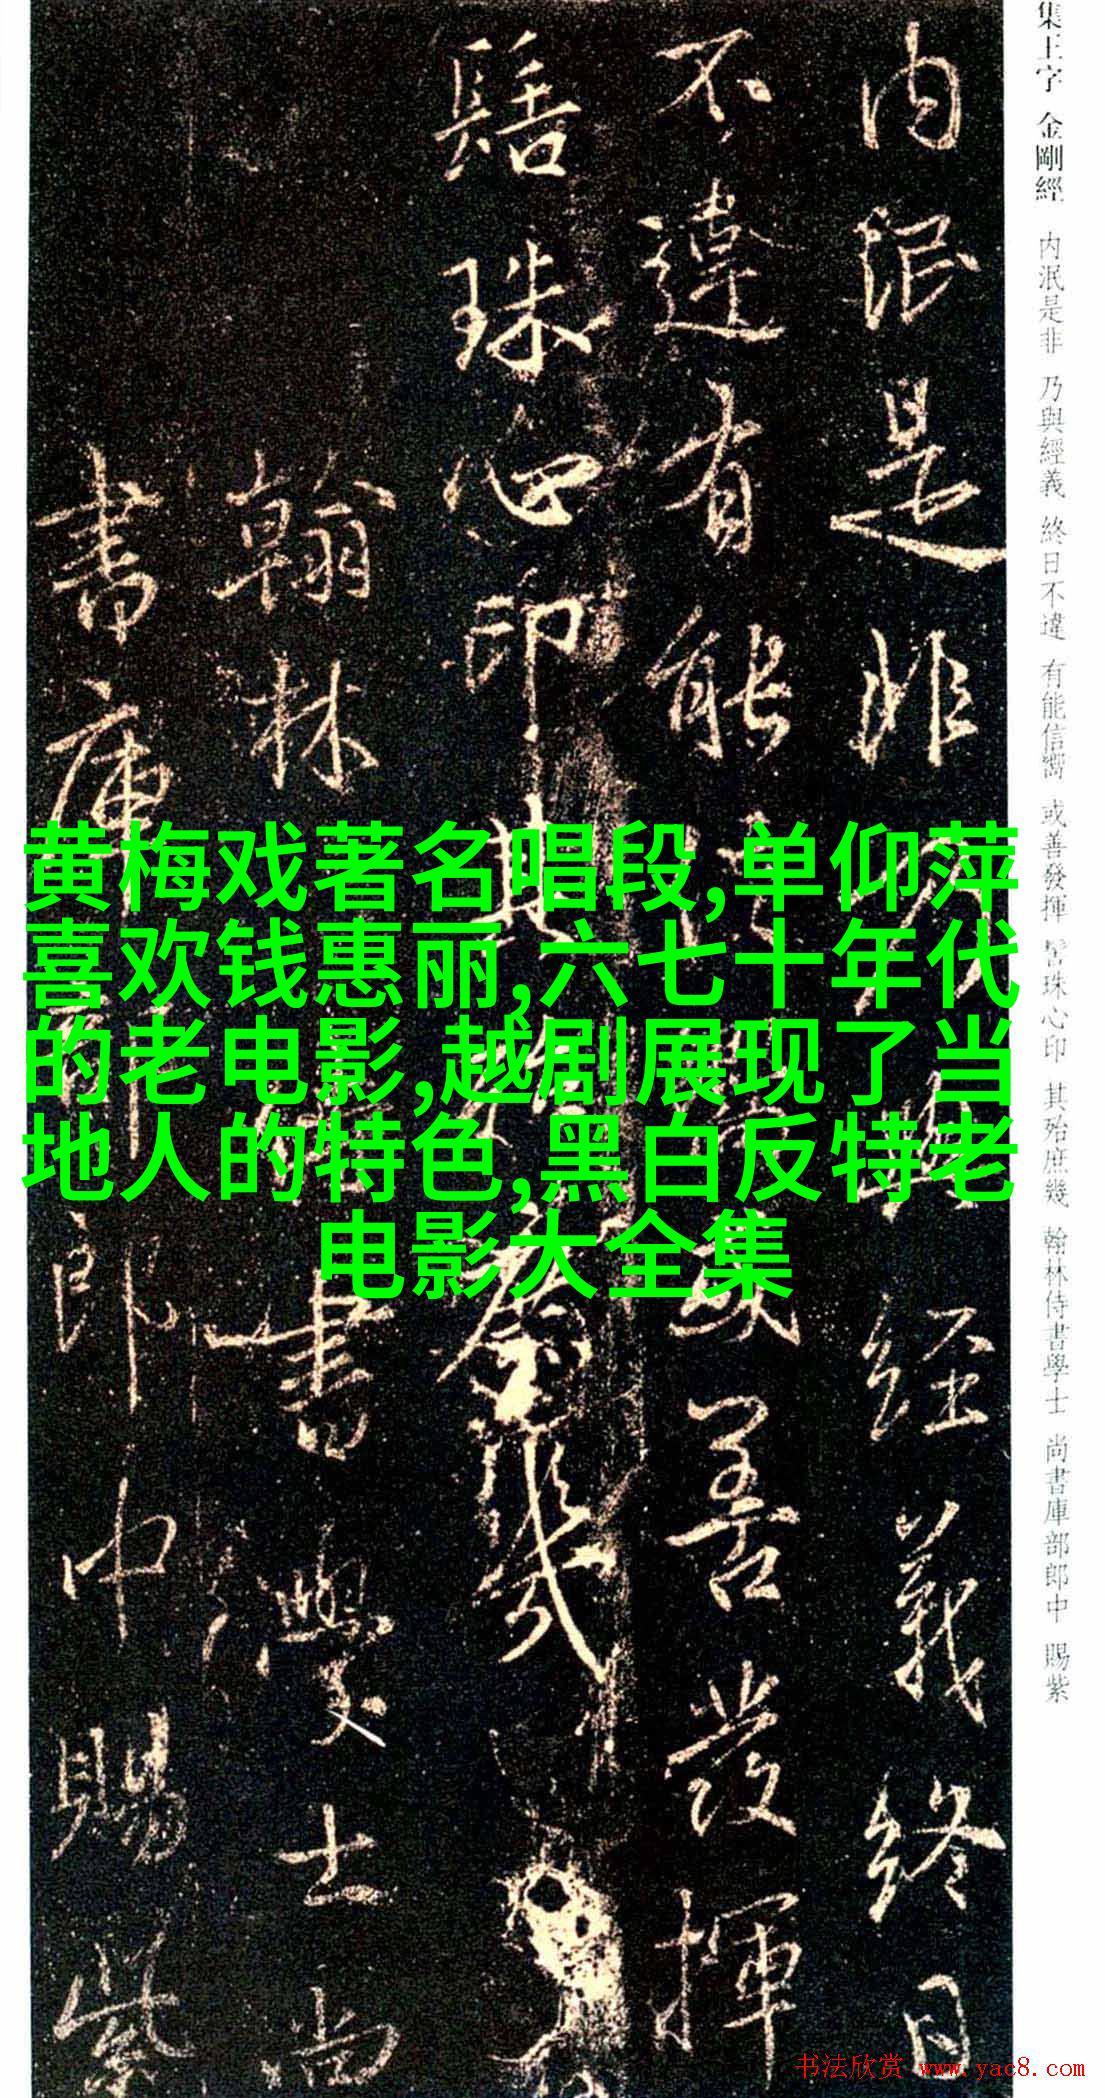 集王字 金剛經 内泯是非 乃與經義 終日不違 有能信嚮 或善發揮 髻珠心印 其殆庶幾 翰林侍書學士 尚書庫部郎中 賜紫
内泯是非乃與經義終日
不違有能信嚮或善發揮
髻珠心印其殆庶幾
翰林侍書學士尚
書庫部郎中賜紫
黄梅戏著名唱段,单仰萍
喜欢钱惠丽,六七十年代
的老电影,越剧展现了当
地人的特色,黑白反特老
电影大全集
书法欣赏 www.yac8.com